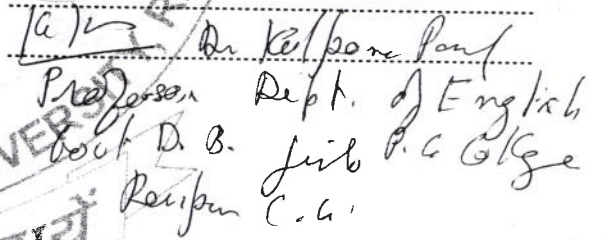 Dr Kalpana Paul
Professor Dept. of English
Govt D. B. Girls P. G College
Raipur C.G.
VERSITY, R